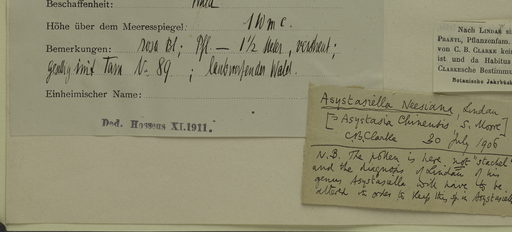 Beschaffenheit: Wald
Höhe über dem Meeresspiegel:
Bemerkungen: rosa Bl; Pfl — 1½ Meter, verstreut;
Wald.
Einheimischer Name:
Ded. Hosseus XI.1911.
Nach LINDAU
PRANTL, Pflanzenfam.
von C. B. CLARKE kei
ist und da Habitus
CLARKEsche Bestimmu
Botanische Jahrbüch
Asystasiella Neesiana, Lindau
[= Asystasia Chinensis S. Moore]
C.B. Clarke 20 July 1906
N.B. The pollen is here not "stachel"
and the diagnosis of Lindau of his
genus Asystasiella will have to be
altered in order to keep this sp. in Asystasiella